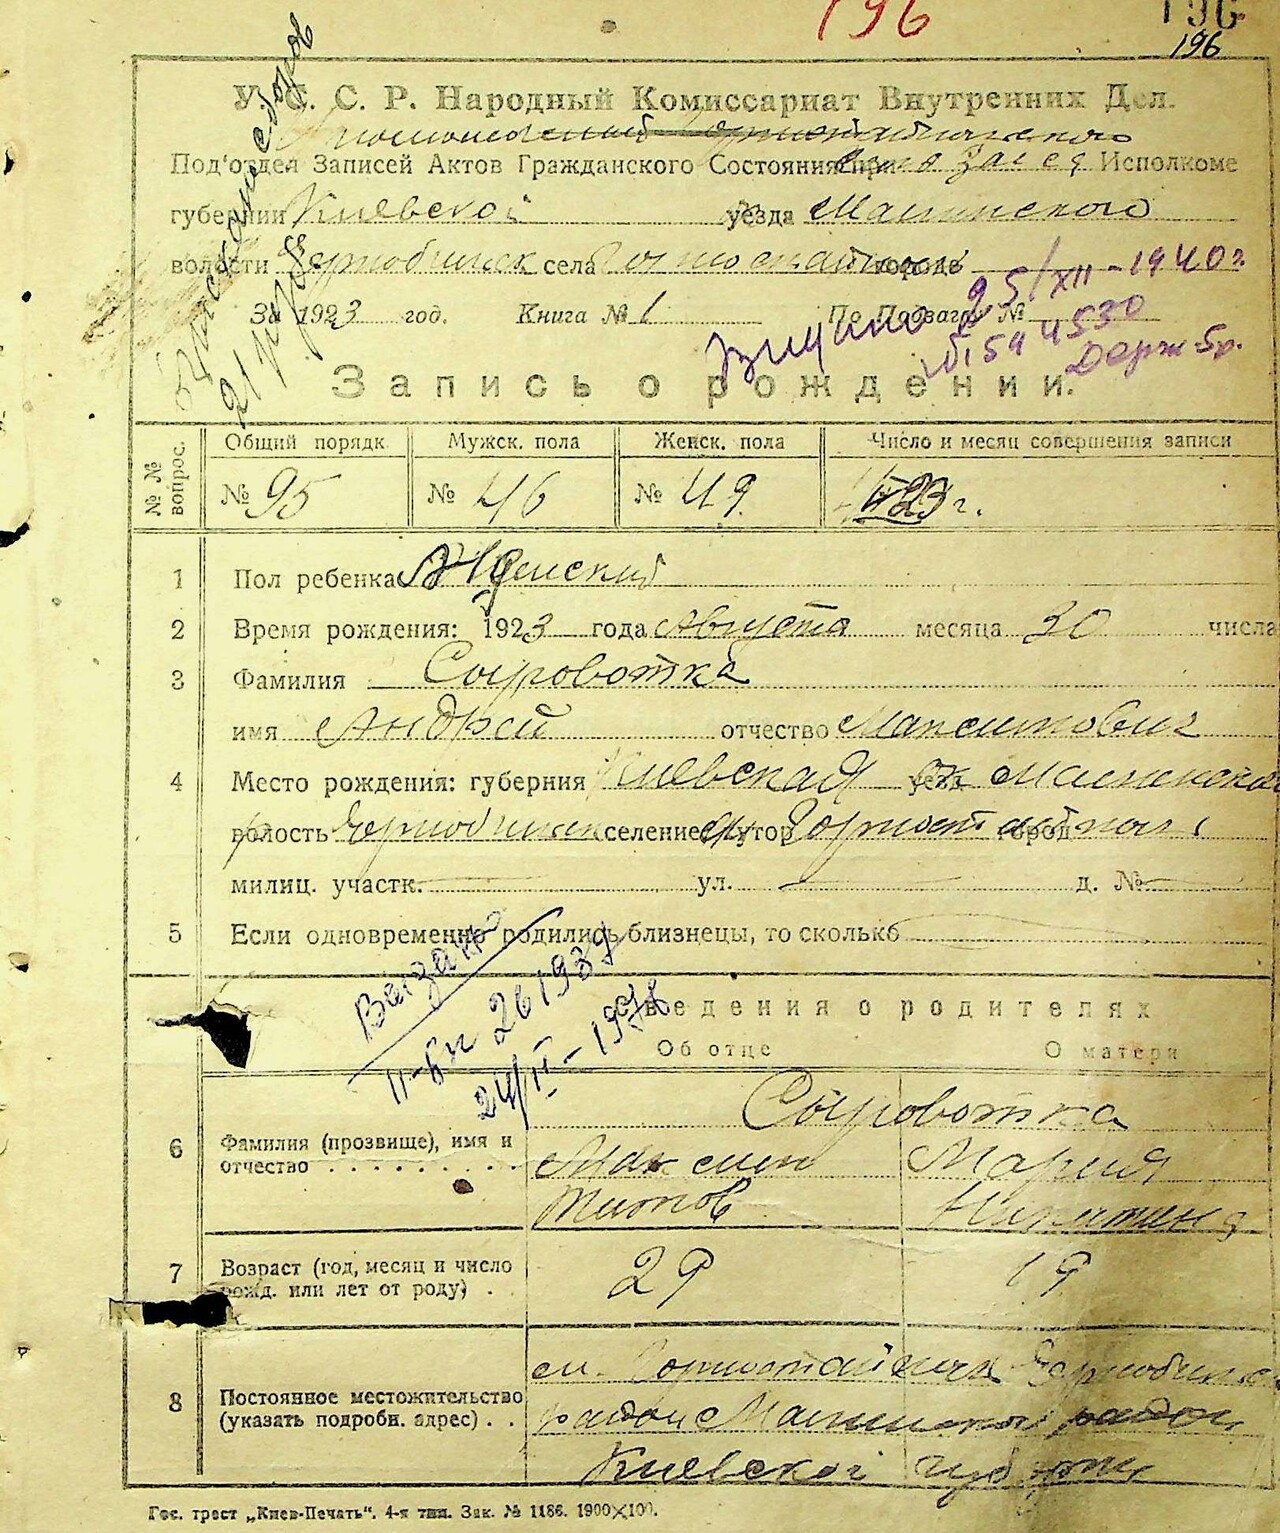 196
196
196
У. С. С. Р. Народный Комиссариат Внутренних Дел.
Под'отдел Записей Актов Гражданского Состояния при Исполкоме
губернии Киевской уезда Малинского
волости села города
За 1923 год. Книга № 1 По Подзагсу №
25/XII-1940 г.
544530
Запись о рождении.
№№ вопрос.
Общий порядк. Мужск. пола Женск. пола Число и месяц совершения записи
№ 95 № 46 № 49 23 г.
1 Пол ребенка
2 Время рождения: 1923 года Августа месяца 30 числа
3 Фамилия Сыроватка
имя Андрей отчество Максимович
4 Место рождения: губерния Киевская уезд Малинский
волость селение хутор город
милиц. участк. ул. д. №
5 Если одновременно родились близнецы, то сколько
Выдано
II-бк 261939
24/II-1978
Сведения о родителях
Об отце О матери
Сыроватка
6 Фамилия (прозвище), имя и
отчество . . . . . . . . .
Максим Мария
Титов Никитина
7 Возраст (год, месяц и число
рожд. или лет от роду) . 29 19
8 Постоянное местожительство
(указать подробн. адрес) . .
м. Горностайполь
район
Киевской губернии
Гос. трест „Киев-Печать“. 4-я тип. Зак. № 1186. 1900×100.